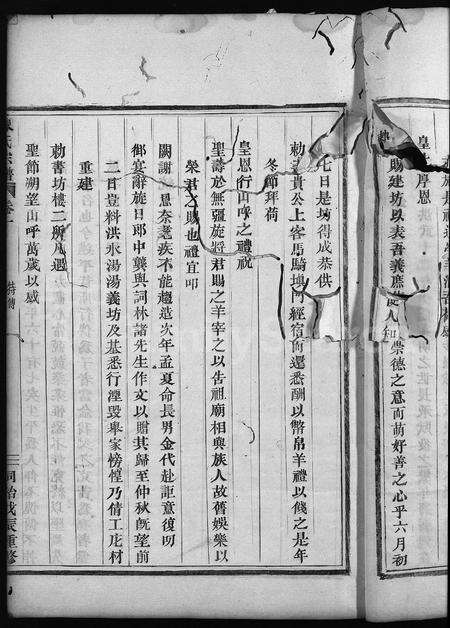 皇
序恩
賜建坊以表吾義庶使人知崇德之意而萌好善之心乎六月初
七日是坊得成恭供
勅書貴公上客馬騎填門經宿而還悉酬以幣帛羊禮以餞之是年
冬節拜荷
皇恩行山呼之禮祝
聖壽於無疆旋將君賜之羊宰之以告祖廟相與族人故舊娛樂以
榮君之賜也禮宜叩
闕謝恩奈耄疾不能趨造次年孟夏命長男金代赴詎意復叨
御宴辭旋日郎中龔與詞林諸先生作文以贈其歸至仲秋既望前
二日豈料洪水湯湯義坊及基悉行湮毀舉家傍惶乃倩工庀材
重建
勅書坊樓二所凡遇
聖節朔望山呼萬歲以咸
氏宗譜
卷一
同治戊辰重修